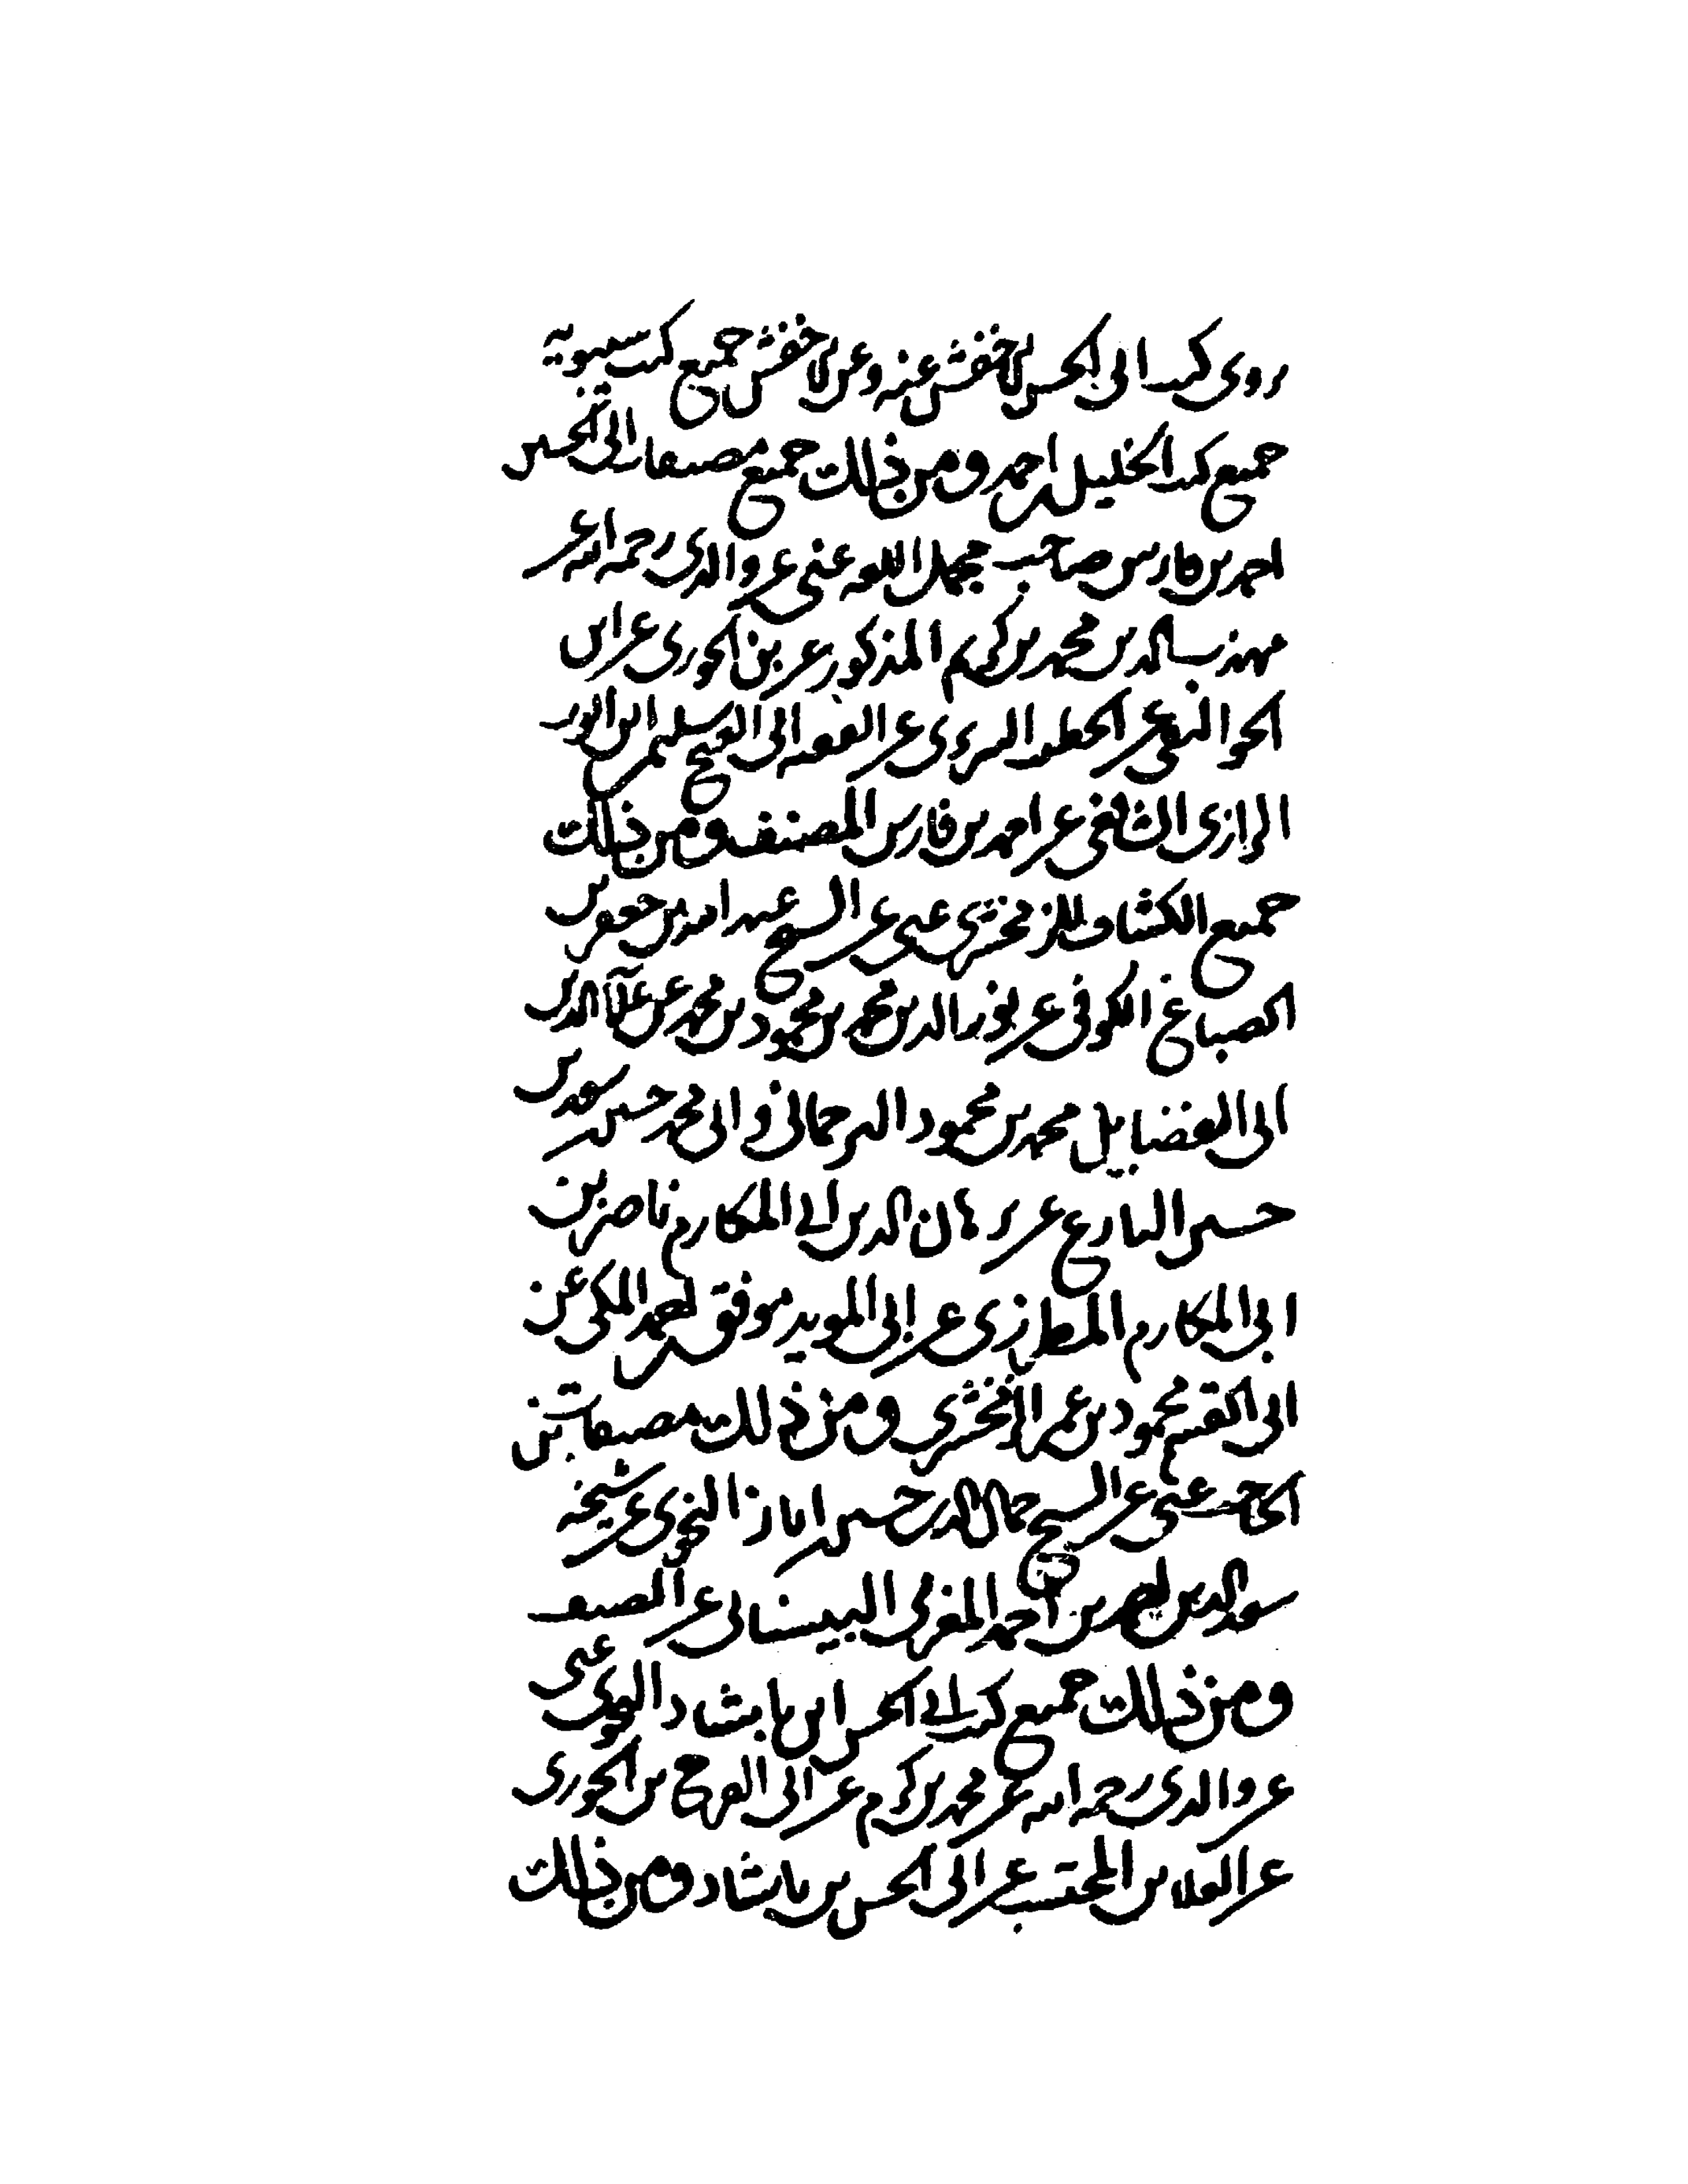 روى كتب ابى الحسن الاخفش عنه وعن الاخفش جميع كتب سيبويه
جميع كتب الخليل احمد ومن ذلك جميع مصنفات ابى الحسين
احمد بن فارس صاحب مجمل اللغه عنى عن والدى رحمه الله عن
مهذب الدين محمد بن كرم المذكور عن بن الجوزى عن ابن
الجواليقى عن الخطيب التبريزى عن الفقيه ابى الفتح سليم ابن ايوب
الرازى الشافعى عن احمد بن فارس المصنف ومن ذلك
جميع الكشاف للزمخشرى عنى عن الشيخ عبد الله بن جعفر بن
الصباغ الكوفى عن نور الدين محمد بن محمود بن محمد عن علآ الدين
ابى الفضايل محمد بن محمود الترجمانى وابى محمد حسن سعد بن
حسين البارع عن برهان الدين ابى المكارم ناصر بن
ابى المكارم المطرزى عن ابى المويد موفق احمد المكى عن
ابى القسم محمود بن عمر الزمخشرى ومن ذلك مصنفات بن
الحاجب عنى عن الشيخ جمال الدين حسين اياز النحوى عن شيخه
سعد الدين احمد بن احمد المغربى البيسانى عن المصنف
ومن ذلك جميع كتب ابى الحسن ابن بابشاد النحوى عنى
عن والدى رحمه الله عن محمد بن كرم عن ابى الفرج بن الجوزى
عن المحتسب عن ابى الحسن بن بابشاد ومن ذلك